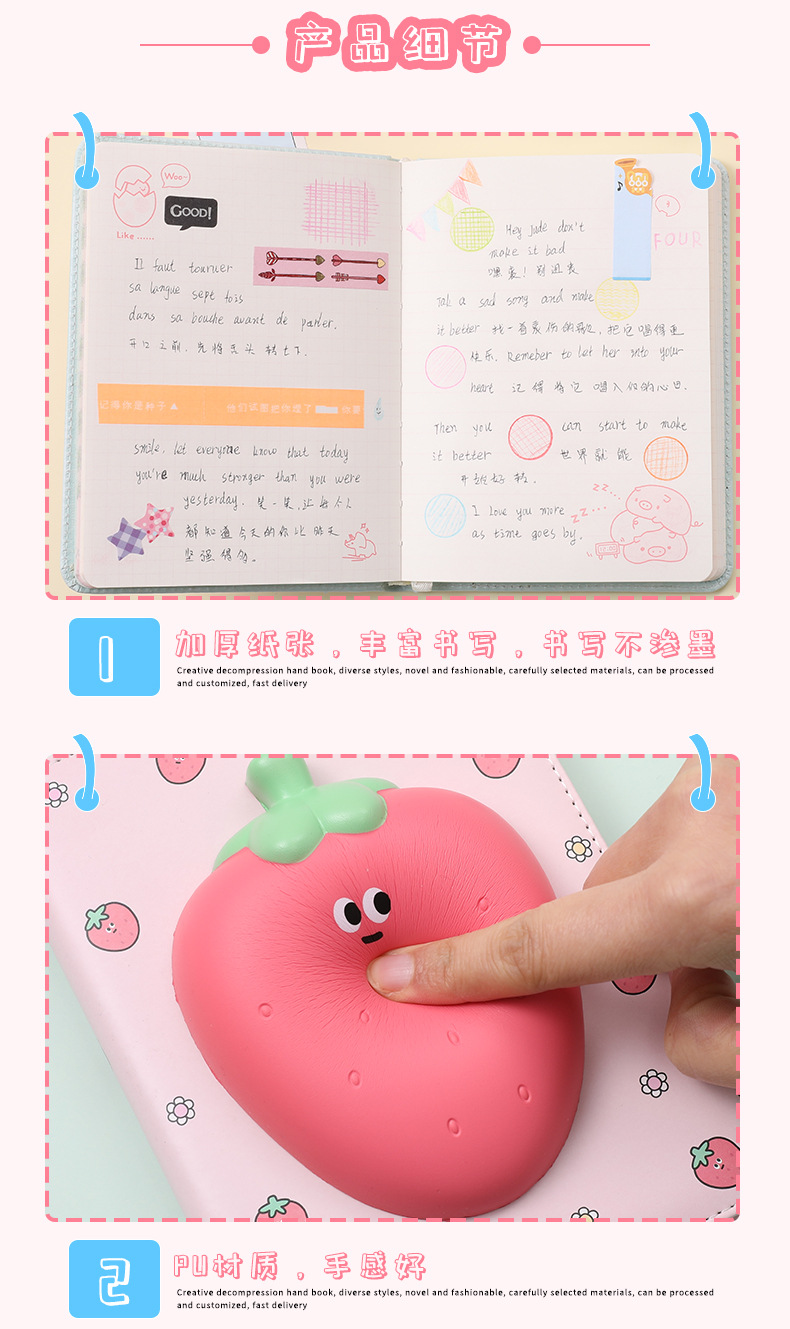 产品细节
Woo~
GOOD!
Like ......
Il faut tourner
sa langue sept fois
dans sa bouche avant de parler.
开口之前，先将舌头转七下.
记得你是种子▲
smile, let everyone know that today
you're much stronger than you were
yesterday. 笑一笑,让每个人
都知道今天的你比昨天
坚强得多。
FOUR
Hey Jude don't
make it bad
嘿 裘! 别沮丧
Take a sad song and make
it better 找一首哀伤的歌, 把它唱得更
快乐. Remeber to let her into your
heart 记得将它唱入你的心田.
Then you can start to make
it better 世界就能
开始好转.
zz..
zz..
I love you more
as time goes by.
1
加厚纸张，丰富书写，书写不渗墨
Creative decompression hand book, diverse styles, novel and fashionable, carefully selected materials, can be processed
and customized, fast delivery
2
PU材质，手感好
Creative decompression hand book, diverse styles, novel and fashionable, carefully selected materials, can be processed
and customized, fast delivery